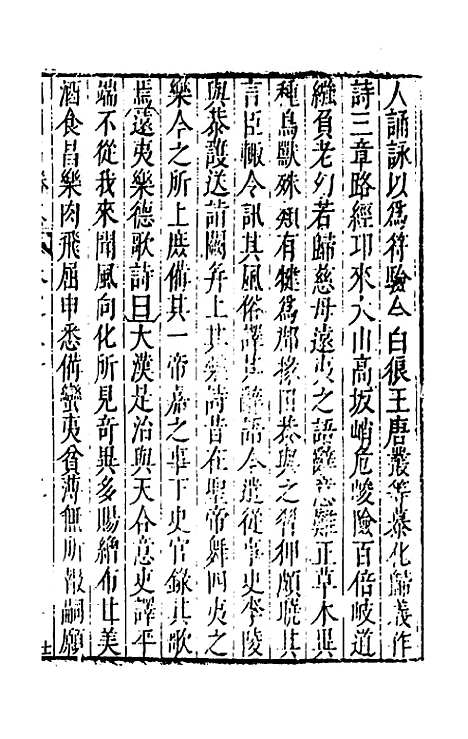 人誦詠以為符驗今白狼王唐叢等慕化歸義作
詩三章路經邛來大山高坂峭危峻險百倍岐道
繈負老幼若歸慈母遠夷之語辭意難正草木異
種鳥獸殊類有犍為郡掾田恭與之習仰頗曉其
言臣輙令訊其風俗譯其辭語今遣從事史李陵
與恭護送詣闕并上其樂詩昔在聖帝舞四夷之
樂今之所上庶備其一帝嘉之事下史官錄其歌
焉遠夷樂德歌詩曰大漢是治與天合意吏譯平
端不從我來聞風向化所見奇異多賜繒布甘美
酒食昌樂肉飛屈申悉備蠻夷貧薄無所報嗣願